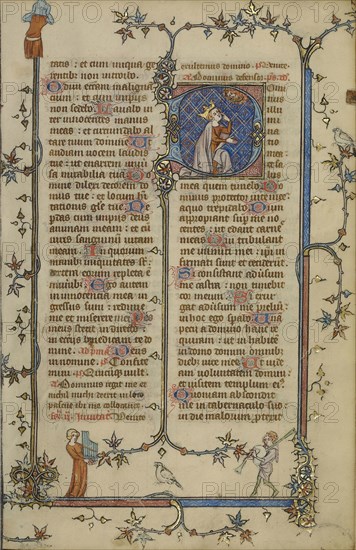 tatis : et cum iniqua ge
rentib; non introibo.
Odiui ecciam maligna
cium : et cum impiis
non sedebo. Lauabo in
ter innocentes manus
meas : et circumdabo al
tare tuum domine. Ut
audiam uocem laudis
tue : et enarrem uniu
sa mirabilia tua. Do
mine dilexi decorem do
mus tue : et locum habi
tationis glie tue. Ne
perdas cum impiis deus
animam meam : et cum
uiris sanguinum uitam
meam. In quorum
manibus iniquitates st :
dextera eorum repleta e
muneribus. Ego autem
in innocentia mea in
gressus sum : redime
me et miserere mei. Pes
meus stetit in directo :
in ecctiis benedicam te do
mine. Deus
in nomine. Confite
mini. Quicumq; uult.
Dominus regit me et
nichil michi deerit in loco
pascue ibi me collocauit.
exultemus domino. ps. Uenite.
Dominus defensor. ps. dd.
mea quem timebo. Do
minus protector uite mee :
a quo trepidabo. Dum
appropiant sup me no
centes : ut edant carnes
meas. Qui tribulant
me inimici mei : ipi in
firmati sunt et ceciderunt.
Si consistant aduersum
me castra : non timebit
cor meum. Si exur
gat aduersum me preliu :
in hoc ego sperabo. Una
peciui a domino hanc re
quiram : ut in habitem
in domo domini omnib;
diebz uite mee. Ut uide
am uoluntatem dni :
et uisitem templum ei.
Quoniam abscondit
me in tabernaculo suo
in die malorum : protexit